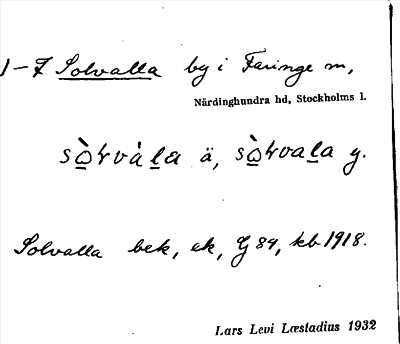 1-7 Solvalla by i Faringe sn,
Närdinghundra hd, Stockholms l.
sòɫvàla ä, sòɫvala y.
Solvalla bek, ek, G 84, kb 1918.
Lars Levi Læstadius 1932